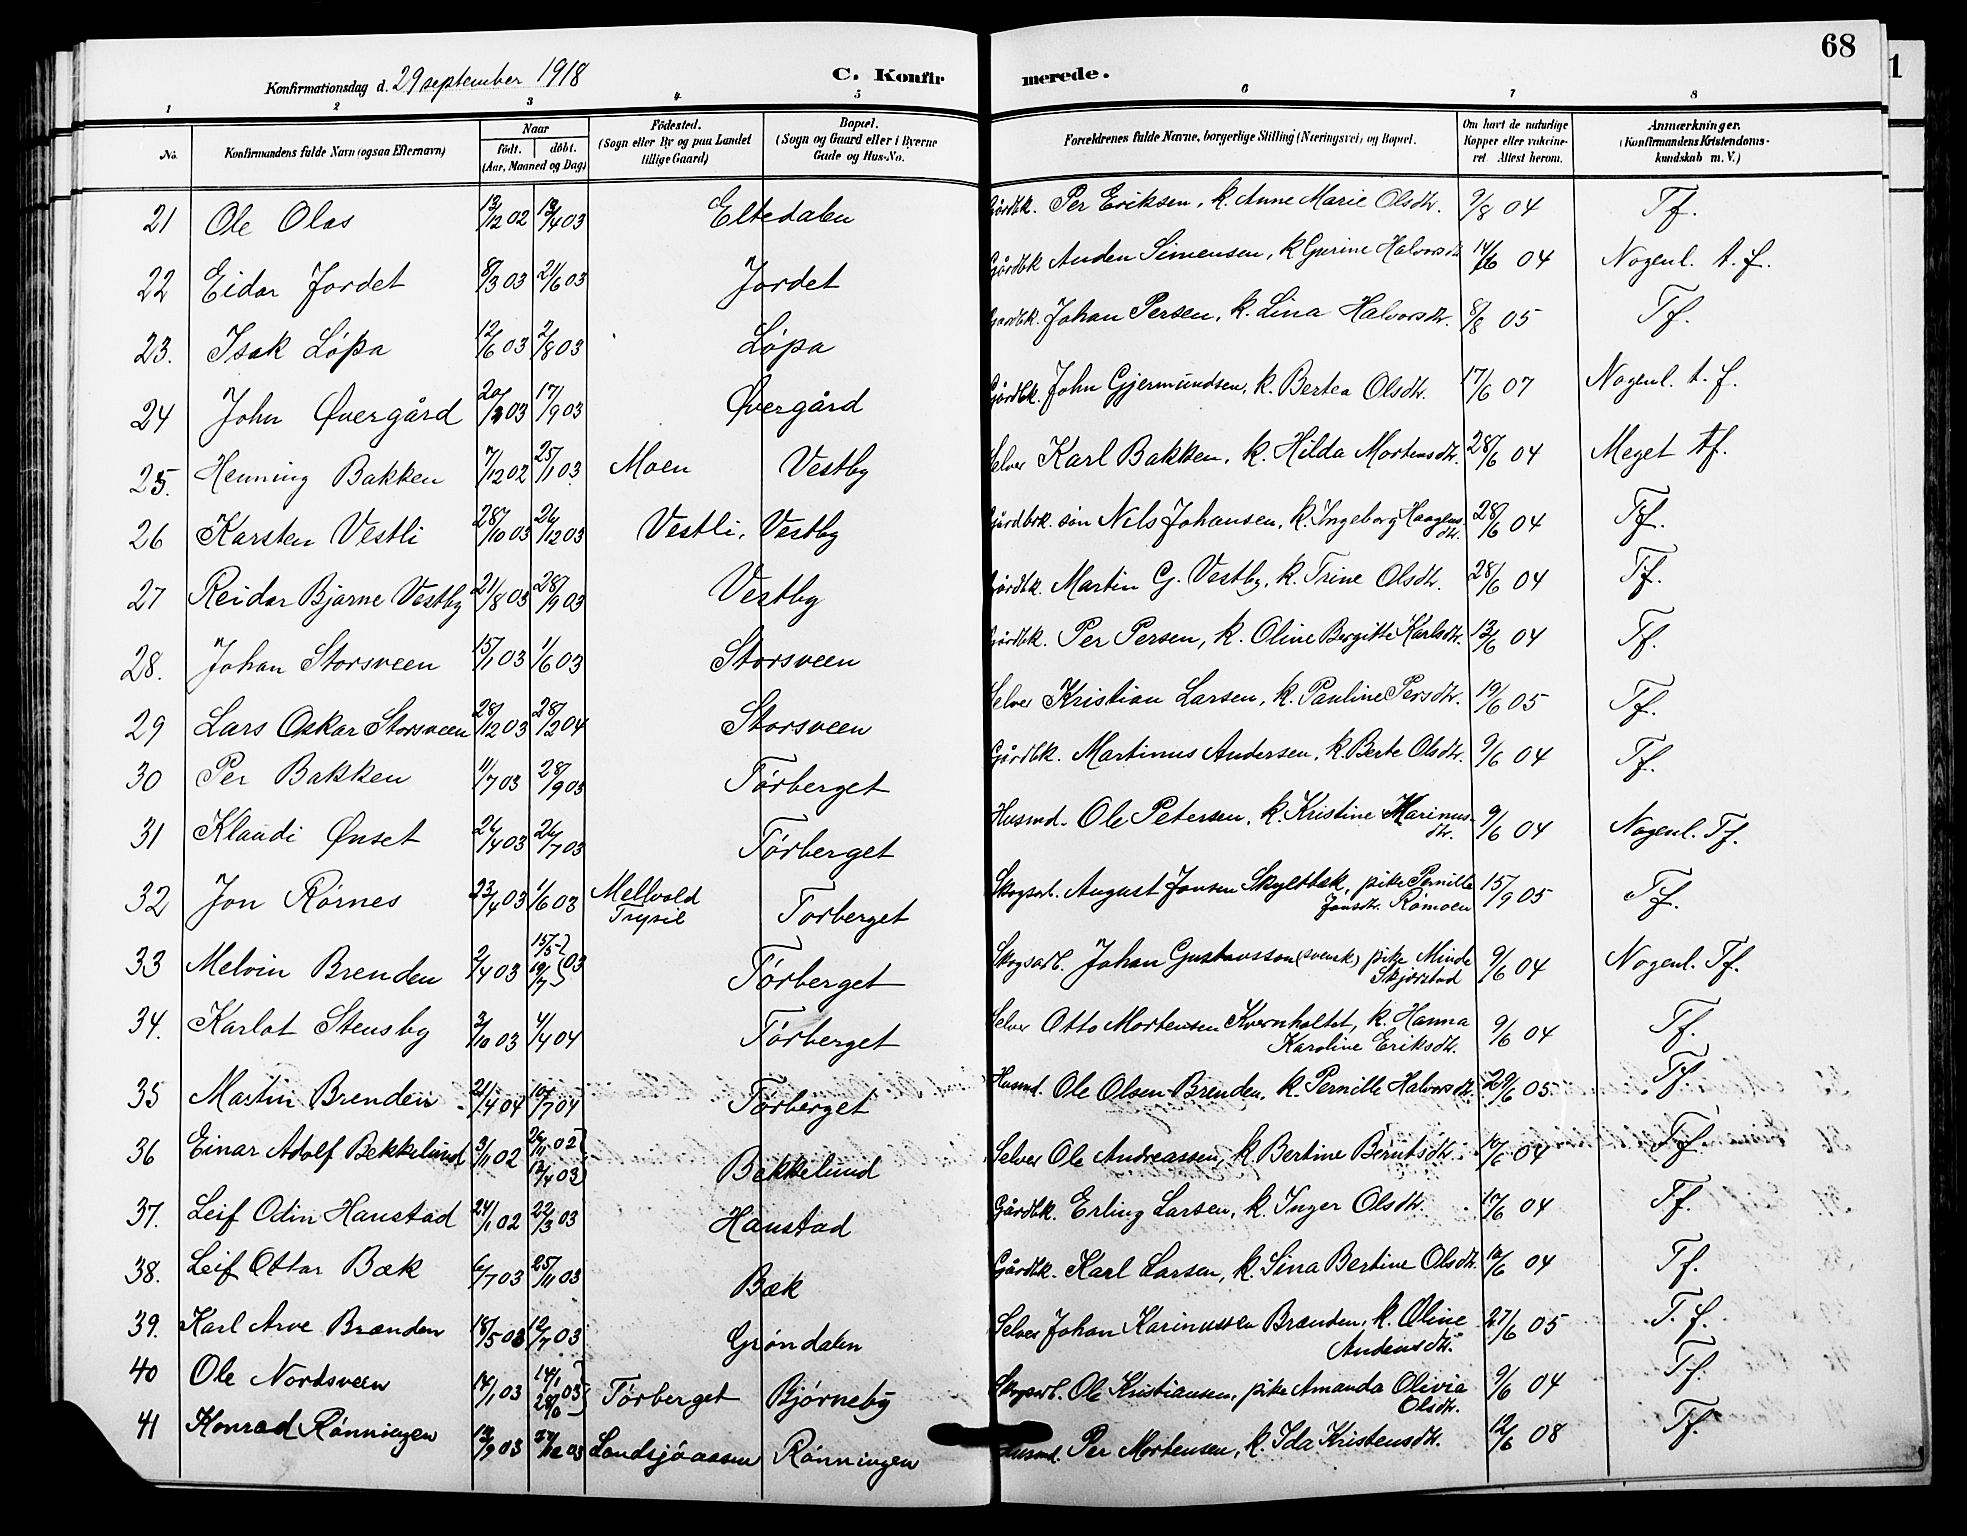 68
1
Konfirmationsdag d. 29 september 1918 C. Konfirmerede.
1 2 3 4 5 6 7 8
No. Konfirmandens fulde Navn (ogsaa Efternavn) Naar født. døbt. (Aar, Maaned og Dag) Fødested. (Sogn eller By og paa Landet tillige Gaard) Bopæl. (Sogn og Gaard eller i Byerne Gade og Hus-No. Forældrenes fulde Navne, borgerlige Stilling (Næringsvei) og Bopæl. Om havt de naturlige Kopper eller vakcineret Attest herom. Anmærkninger. (Konfirmandens Kristendomskundskab m. V.)
21 Ole Olas 13/12 02 13/4 03 Eltedalen Gårdbk. Per Eriksen, k. Anne Marie Olsdtr. 9/8 04 Tf.
22 Eidar Jordet 8/3 03 21/6 03 Jordet Gårdbk Anden Simensen, k Gurine Halvorsdtr 14/6 04 Nogenl. t. f.
23. Isak Löpa 12/6 03 2/8 03 Löpa Gårdbk. Johan Persen, k. Lina Halvorsdtr. 8/8 05 Tf.
24 John Øvergård 20/ 03 17/9 03 Øvergård Gårdbk. John Gjermundsen, k. Bertea Olsdtr. 17/6 07 Nogenl. t. f.
25. Henning Bakken 7/12 02 25/1 03 Moen Vestby Selvei Karl Bakken, k. Hilda Mortensdtr. 28/6 04 Meget tf.
26 Karsten Vestli 28/10 03 26/12 03 Vestli, Vestby Gårdbrk. sön Nils Johansen, k. Ingeborg Haagensdtr. 28/6 04 Tf.
27 Reidar Bjarne Vestby 21/8 03 28/9 03 Vestby Gårdbk. Martin G. Vestby, k. Trine Olsdtr. 28/6 04 Tf.
28. Johan Storsveen 15/1 03 1/6 03 Storsveen Gårdbk. Per Persen, k. Oline Bergitte Karlsdtr. 13/6 04 Tf.
29 Lars Oskar Storsveen 28/12 03 28/2 04 Storsveen Selvei Kristian Larsen, k. Pauline Persdtr. 19/6 05 Tf.
30 Per Bakken 11/7 03 28/9 03 Törberget Gårdbk. Martinus Andersen, k. Berte Olsdtr. 9/6 04 Tf.
31 Klaudi Ønset 26/4 03 26/7 03 Törberget Husmd. Ole Petersen, k. Kristine Marinusdtr. 9/6 04 Nogenl. Tf.
32 Jon Rørnes 23/4 03 1/6 03 Mellvold Trysil Törberget Skogsarb. August Jonsen Skyltbæk, pike Pernille Jonsdtr. Römoen 15/9 05 Tf.
33 Melvin Brenden 2/4 03 15/5 19/7 03 Törberget Skogsarb. Johan Gustavsson (svensk) pike Minda Skjærstad 9/6 04 Nogenl. Tf.
34. Karlot Stensby 3/10 03 4/4 04 Törberget Selvei Otto Mortensen Kvernholtet, k. Hanna Karoline Eriksdtr. 9/6 04 Tf.
35 Martin Brenden 21/4 04 10/7 04 Törberget Husmd. Ole Olsen Brenden, k. Pernille Halvorsdtr. 29/6 05 Tf.
36 Einar Adolf Bekkelund 3/11 02 26/11 02 12/4 03 Bekkelund Selvei Ole Andreassen, k. Bertine Berntsdtr. 10/6 04 Tf.
37. Leif Odin Hanstad 24/1 02 22/3 03 Hanstad Gårdbk. Erling Larsen, k. Inger Olsdtr. 17/6 04 Tf.
38. Leif Ottar Bæk 6/7 03 25/11 03 Bæk Gårdbk. Karl Larsen, k. Sina Bertine Olsdtr. 10/6 04 Tf.
39. Karl Arve Brænden 18/5 03 12/7 03 Gröndalen Selvei Johan Karinussen Brænden, k. Oline Andersdtr. 27/6 05 T. f.
40 Ole Nordsveen 14/1 03 14/1 28/6 03 Törberget Bjørneby Skogsarb. Ole Kristiansen, pike Amanda Olivia Olsdtr. 9/6 04 Tf.
41 Konrad Rönningen 12/9 03 27/12 03 Landsjöaasen Rönningen Husmd. Per Mortensen, k. Ida Kristensdtr. 12/6 08 Tf.